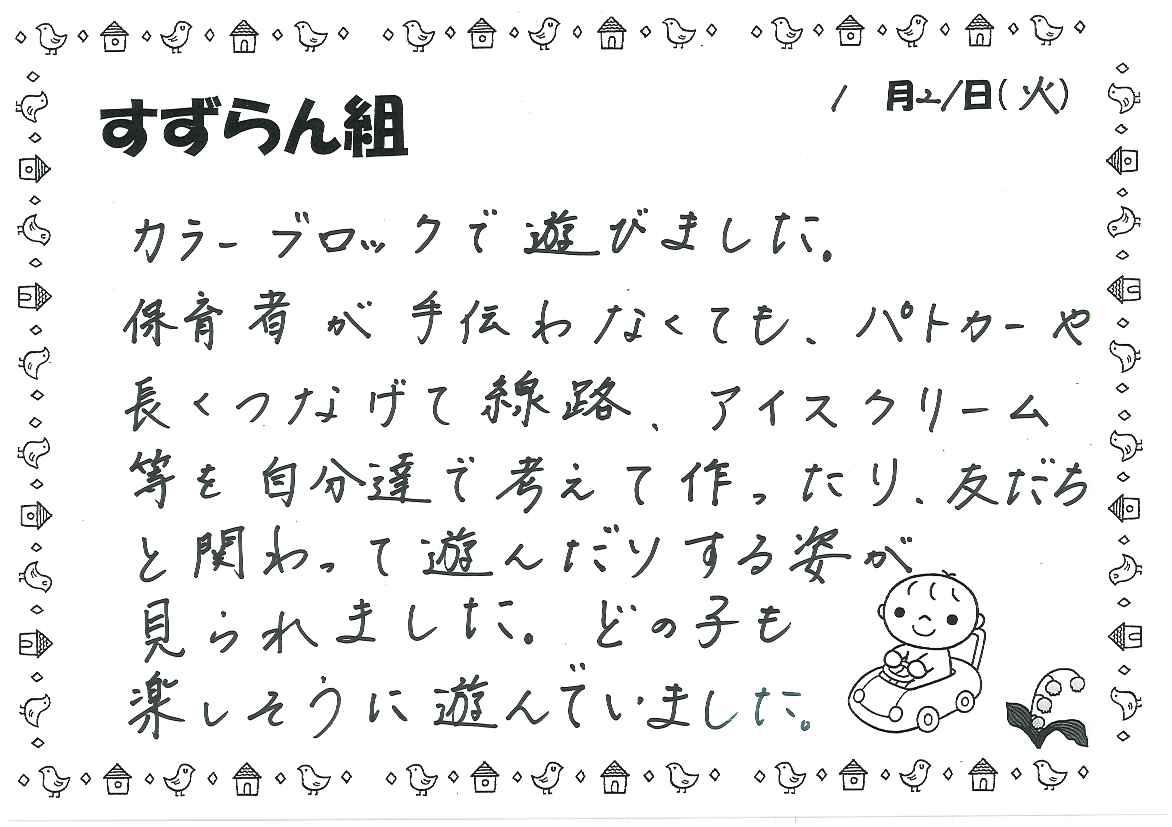 すずらん組
1月21日(火)
カラーブロックで遊びました。
保育者が手伝わなくても、パトカーや
長くつなげて線路、アイスクリーム
等を自分達で考えて作ったり、友だち
と関わって遊んだりする姿が
見られました。どの子も
楽しそうに遊んでいました。